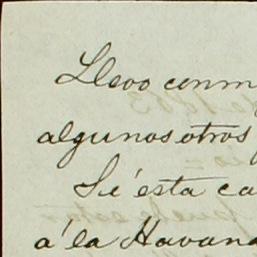 Llevo conm
algunos otros
Si ésta ca
á la Havana